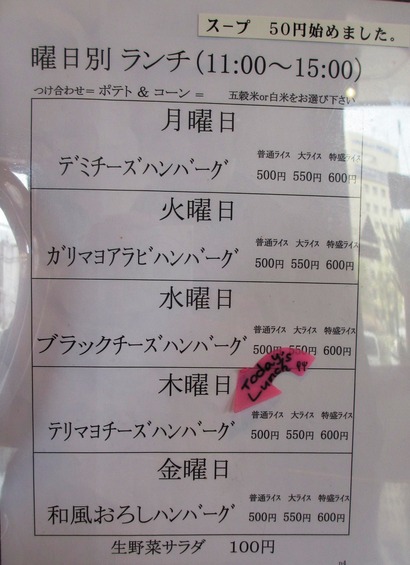 スープ 50円始めました。
曜日別 ランチ(11:00～15:00)
つけ合わせ= ポテト & コーン = 五穀米or白米をお選び下さい
月曜日
普通ライス 大ライス 特盛ライス
デミチーズハンバーグ 500円 550円 600円
火曜日
普通ライス 大ライス 特盛ライス
ガリマヨアラビハンバーグ 500円 550円 600円
水曜日
普通ライス 大ライス 特盛ライス
ブラックチーズハンバーグ 500円 550円 600円
Today's
Lunch
木曜日
普通ライス 大ライス 特盛ライス
テリマヨチーズハンバーグ 500円 550円 600円
金曜日
普通ライス 大ライス 特盛ライス
和風おろしハンバーグ 500円 550円 600円
生野菜サラダ 100円